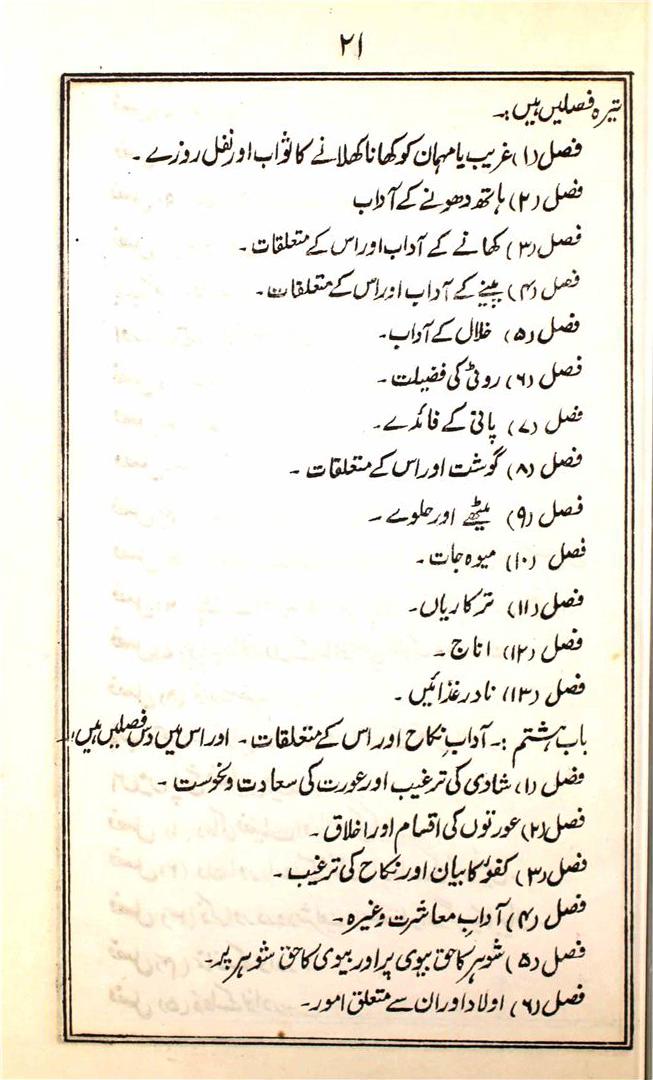 ۲۱
تیرہ فصلیں ہیں:۔
فصل (۱) غریب یا مہمان کو کھانا کھلانے کا ثواب اور نفل روزے۔
فصل (۲) ہاتھ دھونے کے آداب
فصل (۳) کھانے کے آداب اور اس کے متعلقات۔
فصل (۴) پینے کے آداب اور اس کے متعلقات۔
فصل (۵) خلال کے آداب۔
فصل (۶) روٹی کی فضیلت۔
فصل (۷) پانی کے فائدے۔
فصل (۸) گوشت اور اس کے متعلقات۔
فصل (۹) میٹھے اور حلوے۔
فصل (۱۰) میوہ جات۔
فصل (۱۱) ترکاریاں۔
فصل (۱۲) اناج۔
فصل (۱۳) نادر غذائیں۔
باب ہشتم :۔ آدابِ نکاح اور اس کے متعلقات۔ اور اس میں دس فصلیں ہیں:۔
فصل (۱) شادی کی ترغیب اور عورت کی سعادت و نحوست۔
فصل (۲) عورتوں کی اقسام اور اخلاق۔
فصل (۳) کفو کا بیان اور نکاح کی ترغیب۔
فصل (۴) آدابِ معاشرت وغیرہ۔
فصل (۵) شوہر کا حق بیوی پر اور بیوی کا حق شوہر پر۔
فصل (۶) اولاد اور ان سے متعلق امور۔